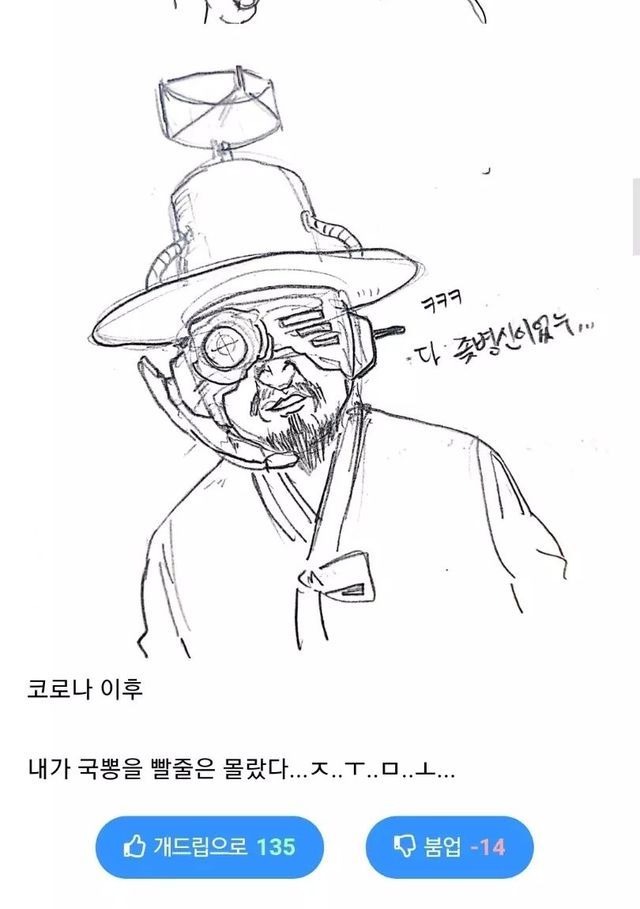 ㅋㅋㅋ
다 좆병신이었누...
코로나 이후
내가 국뽕을 빨줄은 몰랐다...ㅈ..ㅜ..ㅁ..ㅗ...
개드립으로 135
붐업 -14